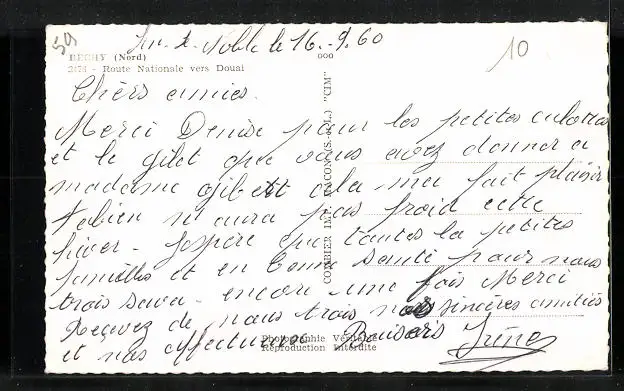 59
10
Sin-le-Noble le 16-9.60
BEGHY (Nord) 000
2476 - Route Nationale vers Douai
Chèrs amies.
Merci Denise pour les petites culottes
et le gilet que vous avez donner a
madame gibett cela ma fait plaisir
Fabien n'aura pas froid cette
hiver - Jospère que toutes la petites
familles et en bonne santé pour nous
trois sava - encore une fois Merci
Reçevez de nous trois nos sincères amitiés
et nos affectueux Baisers Irène
COMBIER IMP. MACON (S.-&-L.) "CIM"
Photographie Véritable
Reproduction Interdite